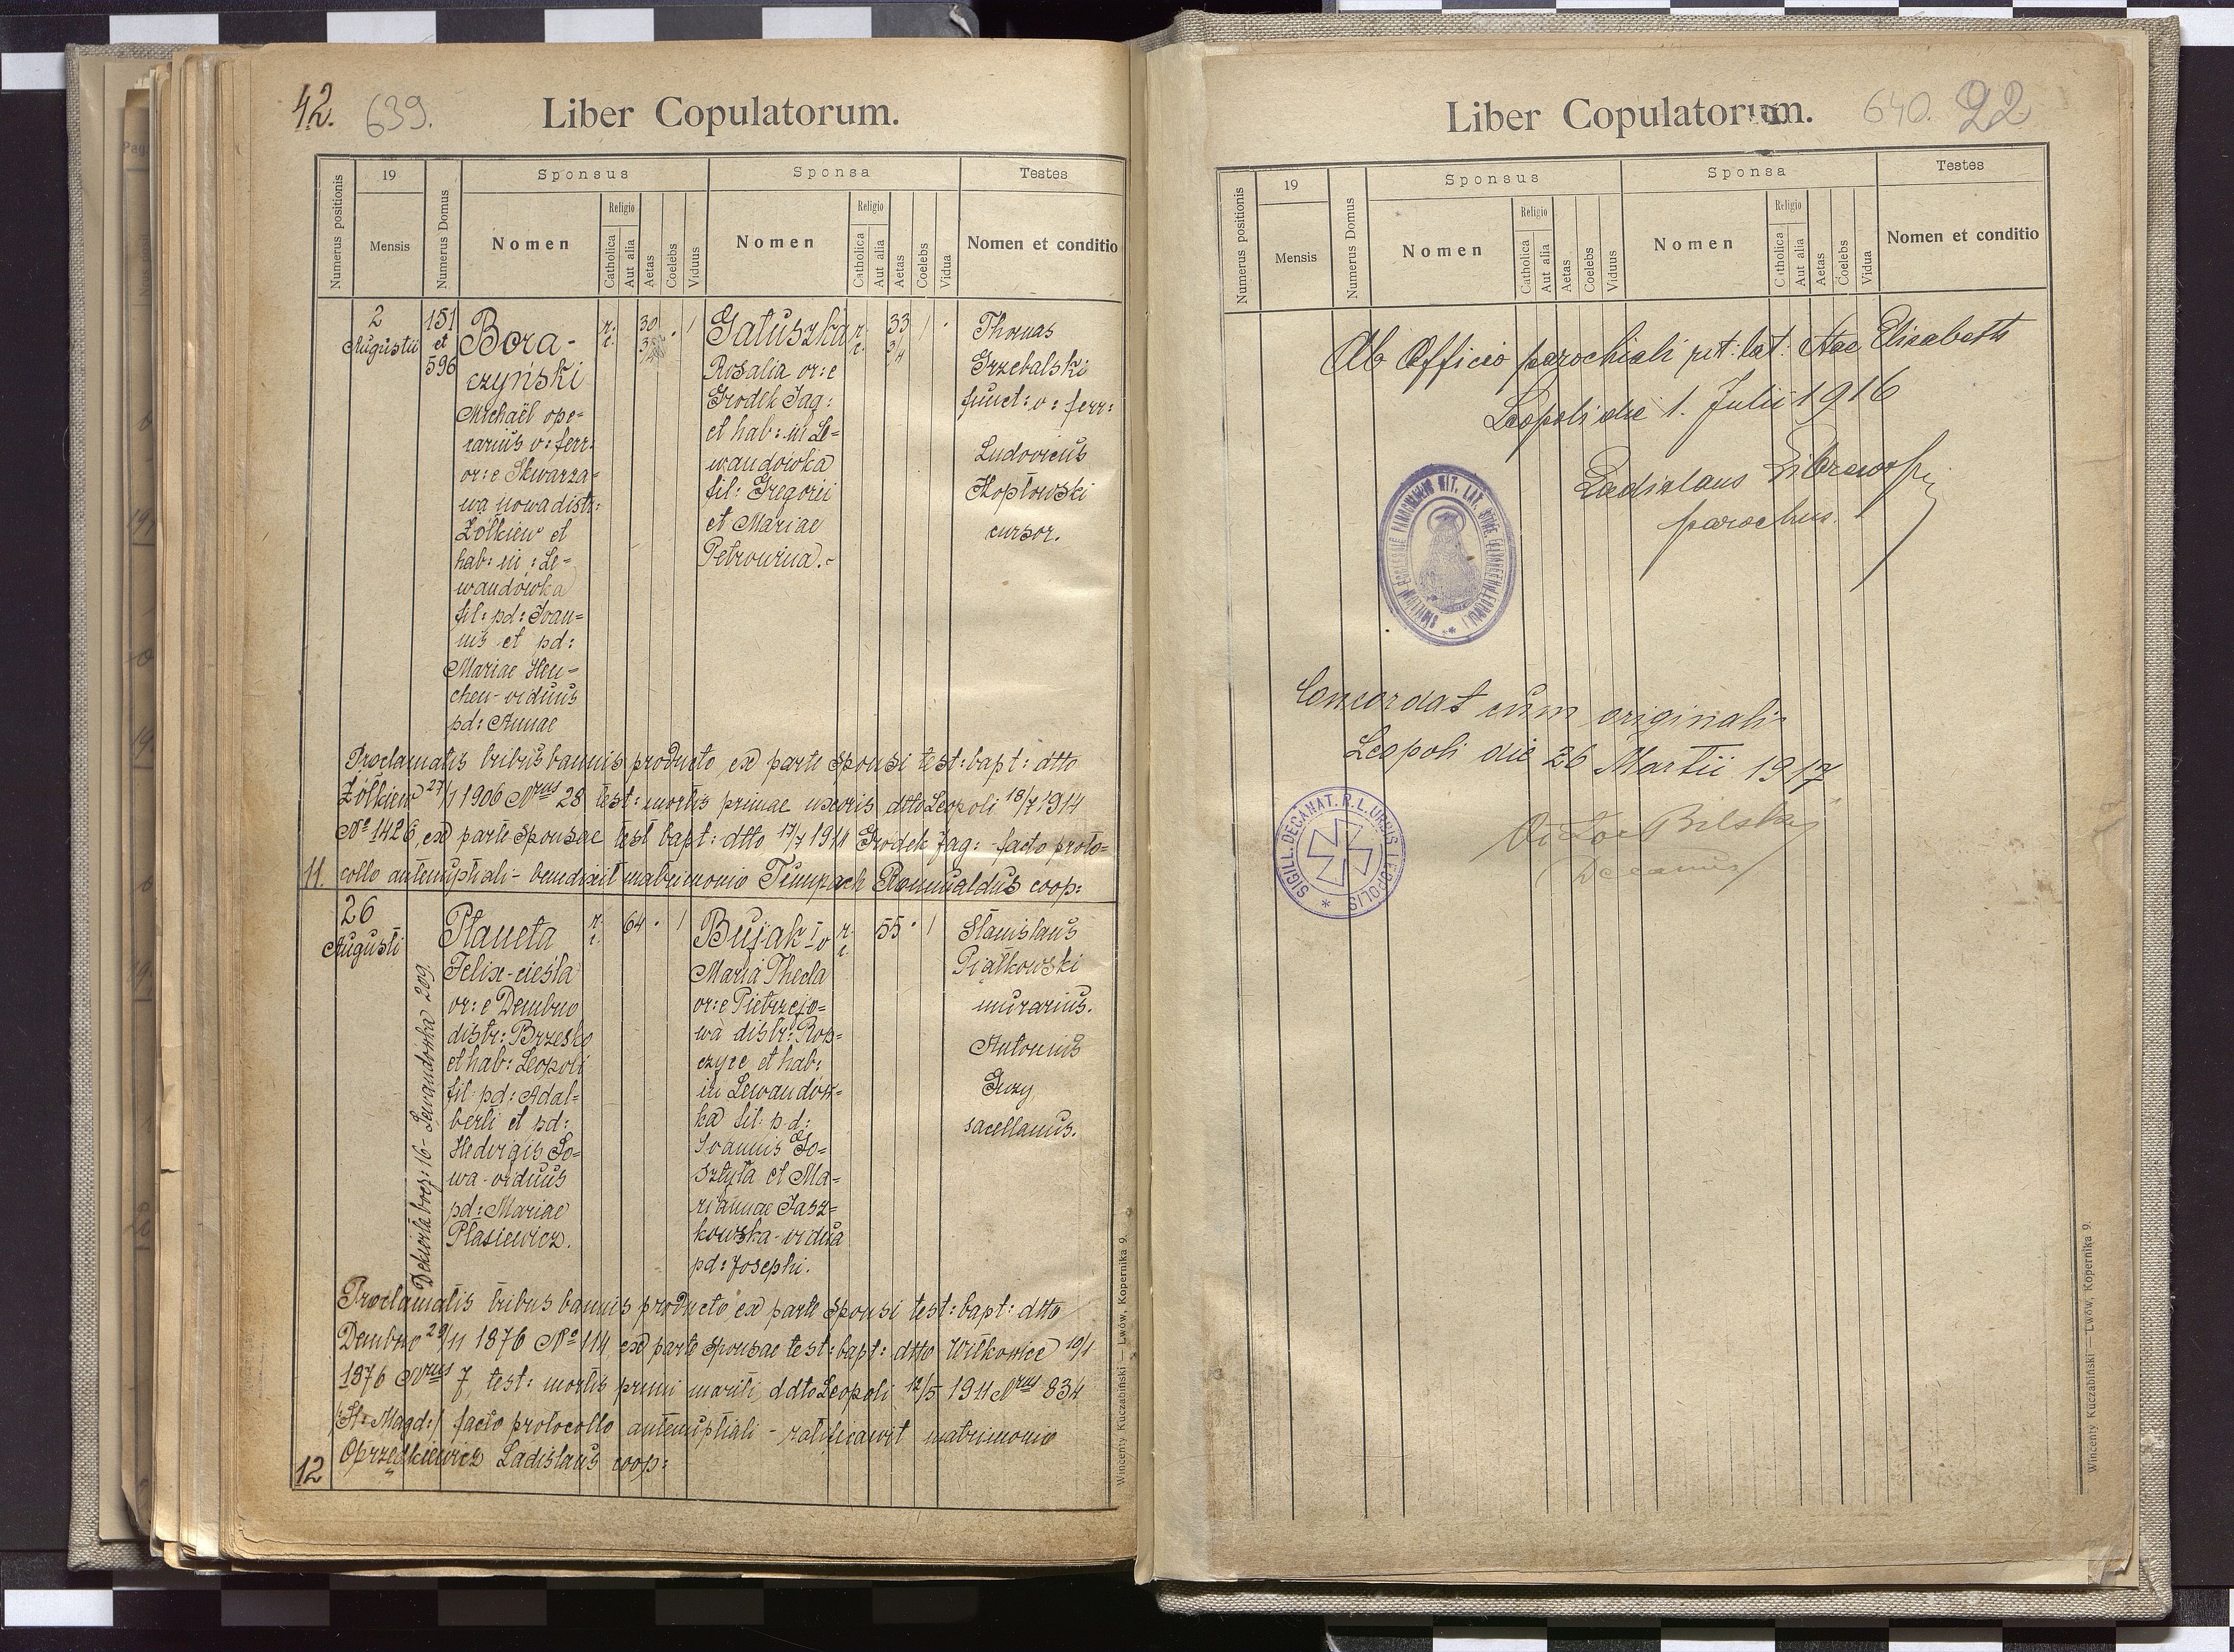 42. 639. Liber Copulatorum.
Numerus positionis
19
Mensis
Numerus Domus
Sponsus
Nomen
Religio
Catholica
Aut alia
Aetas
Coelebs
Viduus
Sponsa
Nomen
Religio
Catholica
Aut alia
Aetas
Coelebs
Vidua
Testes
Nomen et conditio
2
Augustii
151
et
596
Bora-
czyński
Michaël ope-
rarius v: ferr:
or: e Skwarza-
wa nowa distr:
Żółkiew et
hab: in: Le-
wandówka
fil: pd: Ioan-
nis et pd:
Mariae Hen-
chen - viduus
pd: Annae
r:
c.
30
3/4
. 1
Gałuszka
Rosalia or: e
Grodek Jag:
et hab: in Le-
wandówka
fil: Gregorii
et Mariae
Petrowina).-
r:
c.
33
3/4
1 .
Thomas
Grzebalski
funct: v: ferr:
Ludovicus
Kopłowski
cursor.
Proclamatis tribus bannis producto ex parte Sponsi test: bapt: dtto
Żółkiew 27/1 1906 Nrus 28, test: mortis primae uxoris dtto Leopoli 18/7 1914
No 1426, ex parte Sponsae test bapt: dtto 17/7 1911 Grodek Jag: - facto proto-
11. collo antenuptiali - benedixit matrimonio Timpach Romualdus coop:
26
Augusti
Dekerta boczn: 16 - Lewandówka 209.
Płaneta
Felix - cieśla
or: e Dembno
distr: Brzesko
et hab: Leopoli
fil: pd: Adal-
berti et pd:
Hedvigis So-
wa - viduus
pd: Mariae
Ptasiewicz.
r:
c.
64 . 1
Bujak Iv
Maria Thecla
or: e Pietrzejo-
wa distr: Rop-
czyce et hab:
in Lewandów-
ka fil: pd:
Ioannis Go-
sztyła et Ma-
riannae Jasz-
kowska - vidua
pd: Josephi.
r:
c.
55 . 1
Stanislaus
Piątkowski
murarius.
Antonius
Guzy
sacellanus.
Proclamatis tribus bannis producto ex parte Sponsi test: bapt: dtto
Dembno 29/11 1876 No 114, ex parte Sponsae test: bapt: dtto Witkowice 10/1
1876 Nrus 7, test: mortis primi mariti, ddto Leopoli 12/5 1911 Nrus 834
/St: Magd:/ facto protocollo antenuptiali - ratificavit matrimonio
12 Oprzędkiewicz Ladislaus coop:
Wincenty Kuczabiński — Lwów, Kopernika 9.
Liber Copulatorum. 640. 22
Numerus positionis
19
Mensis
Numerus Domus
Sponsus
Nomen
Religio
Catholica
Aut alia
Aetas
Coelebs
Viduus
Sponsa
Nomen
Religio
Catholica
Aut alia
Aetas
Coelebs
Vidua
Testes
Nomen et conditio
Ab Officio parochiali rit: lat: Stae Elisabeth
Leopoli die 1. Julii 1916
Ladislaus
parochus.
Concordat cum originali
Leopoli die 26 Martii 1917
Bilski
Decanus
SIGILL. DECANAT. R. L. URBIS LEOPOLIS *
Wincenty Kuczabiński — Lwów, Kopernika 9.